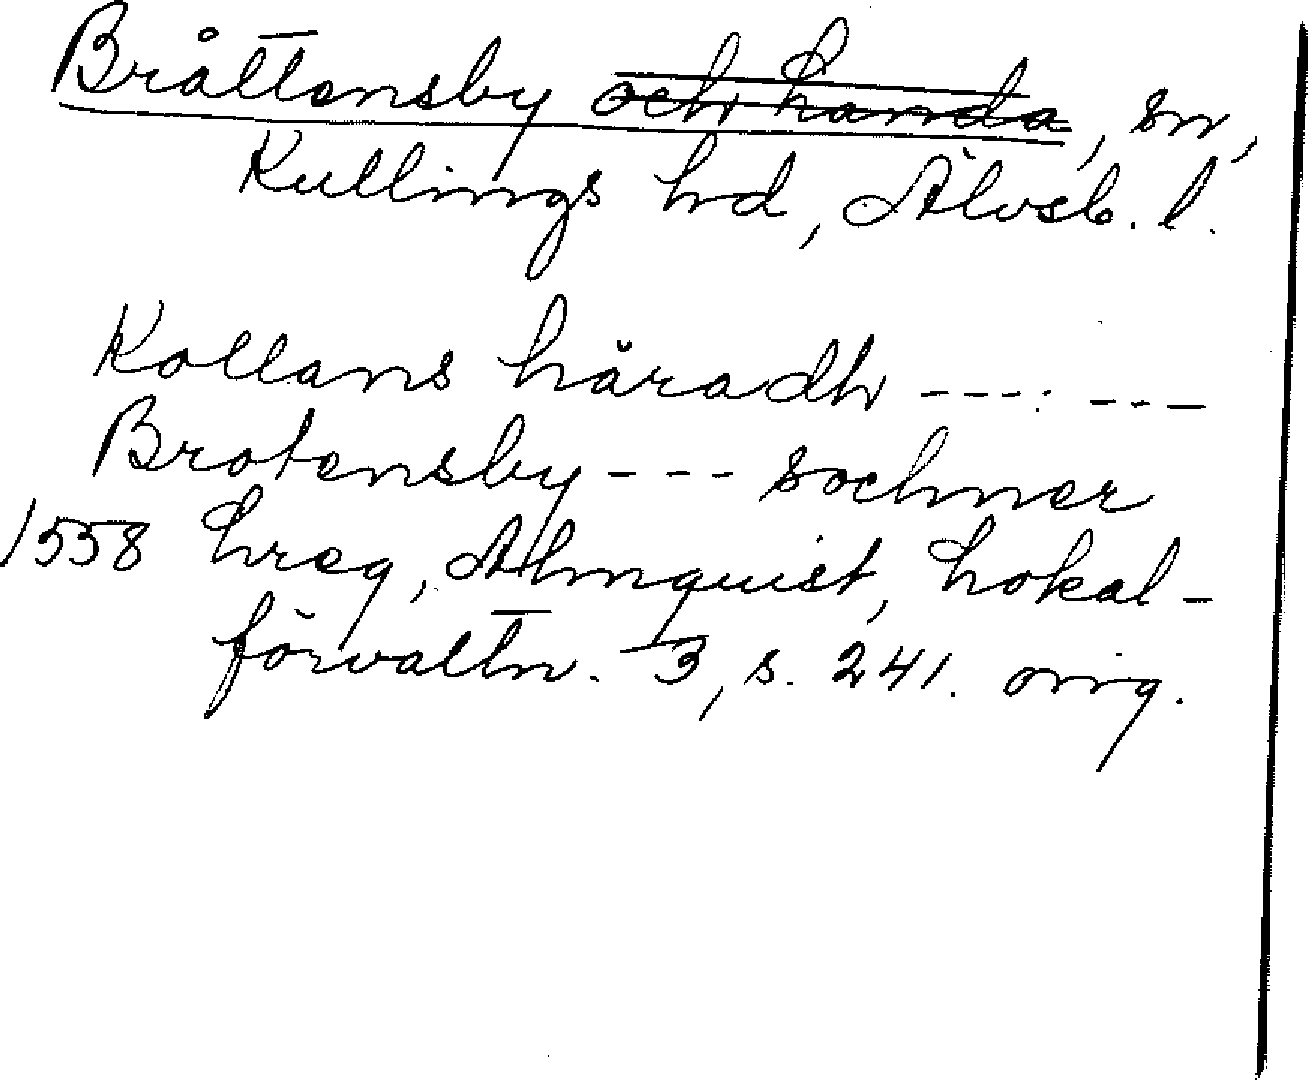 Bråttensby och Landa, sn,
Kullings hd, Älvsb. l.
Kollans håradh ---- ---
Brotensby --- sochner
1558 Lreg, Almquist, Lokal-
förvaltn. 3, s. 241. orig.